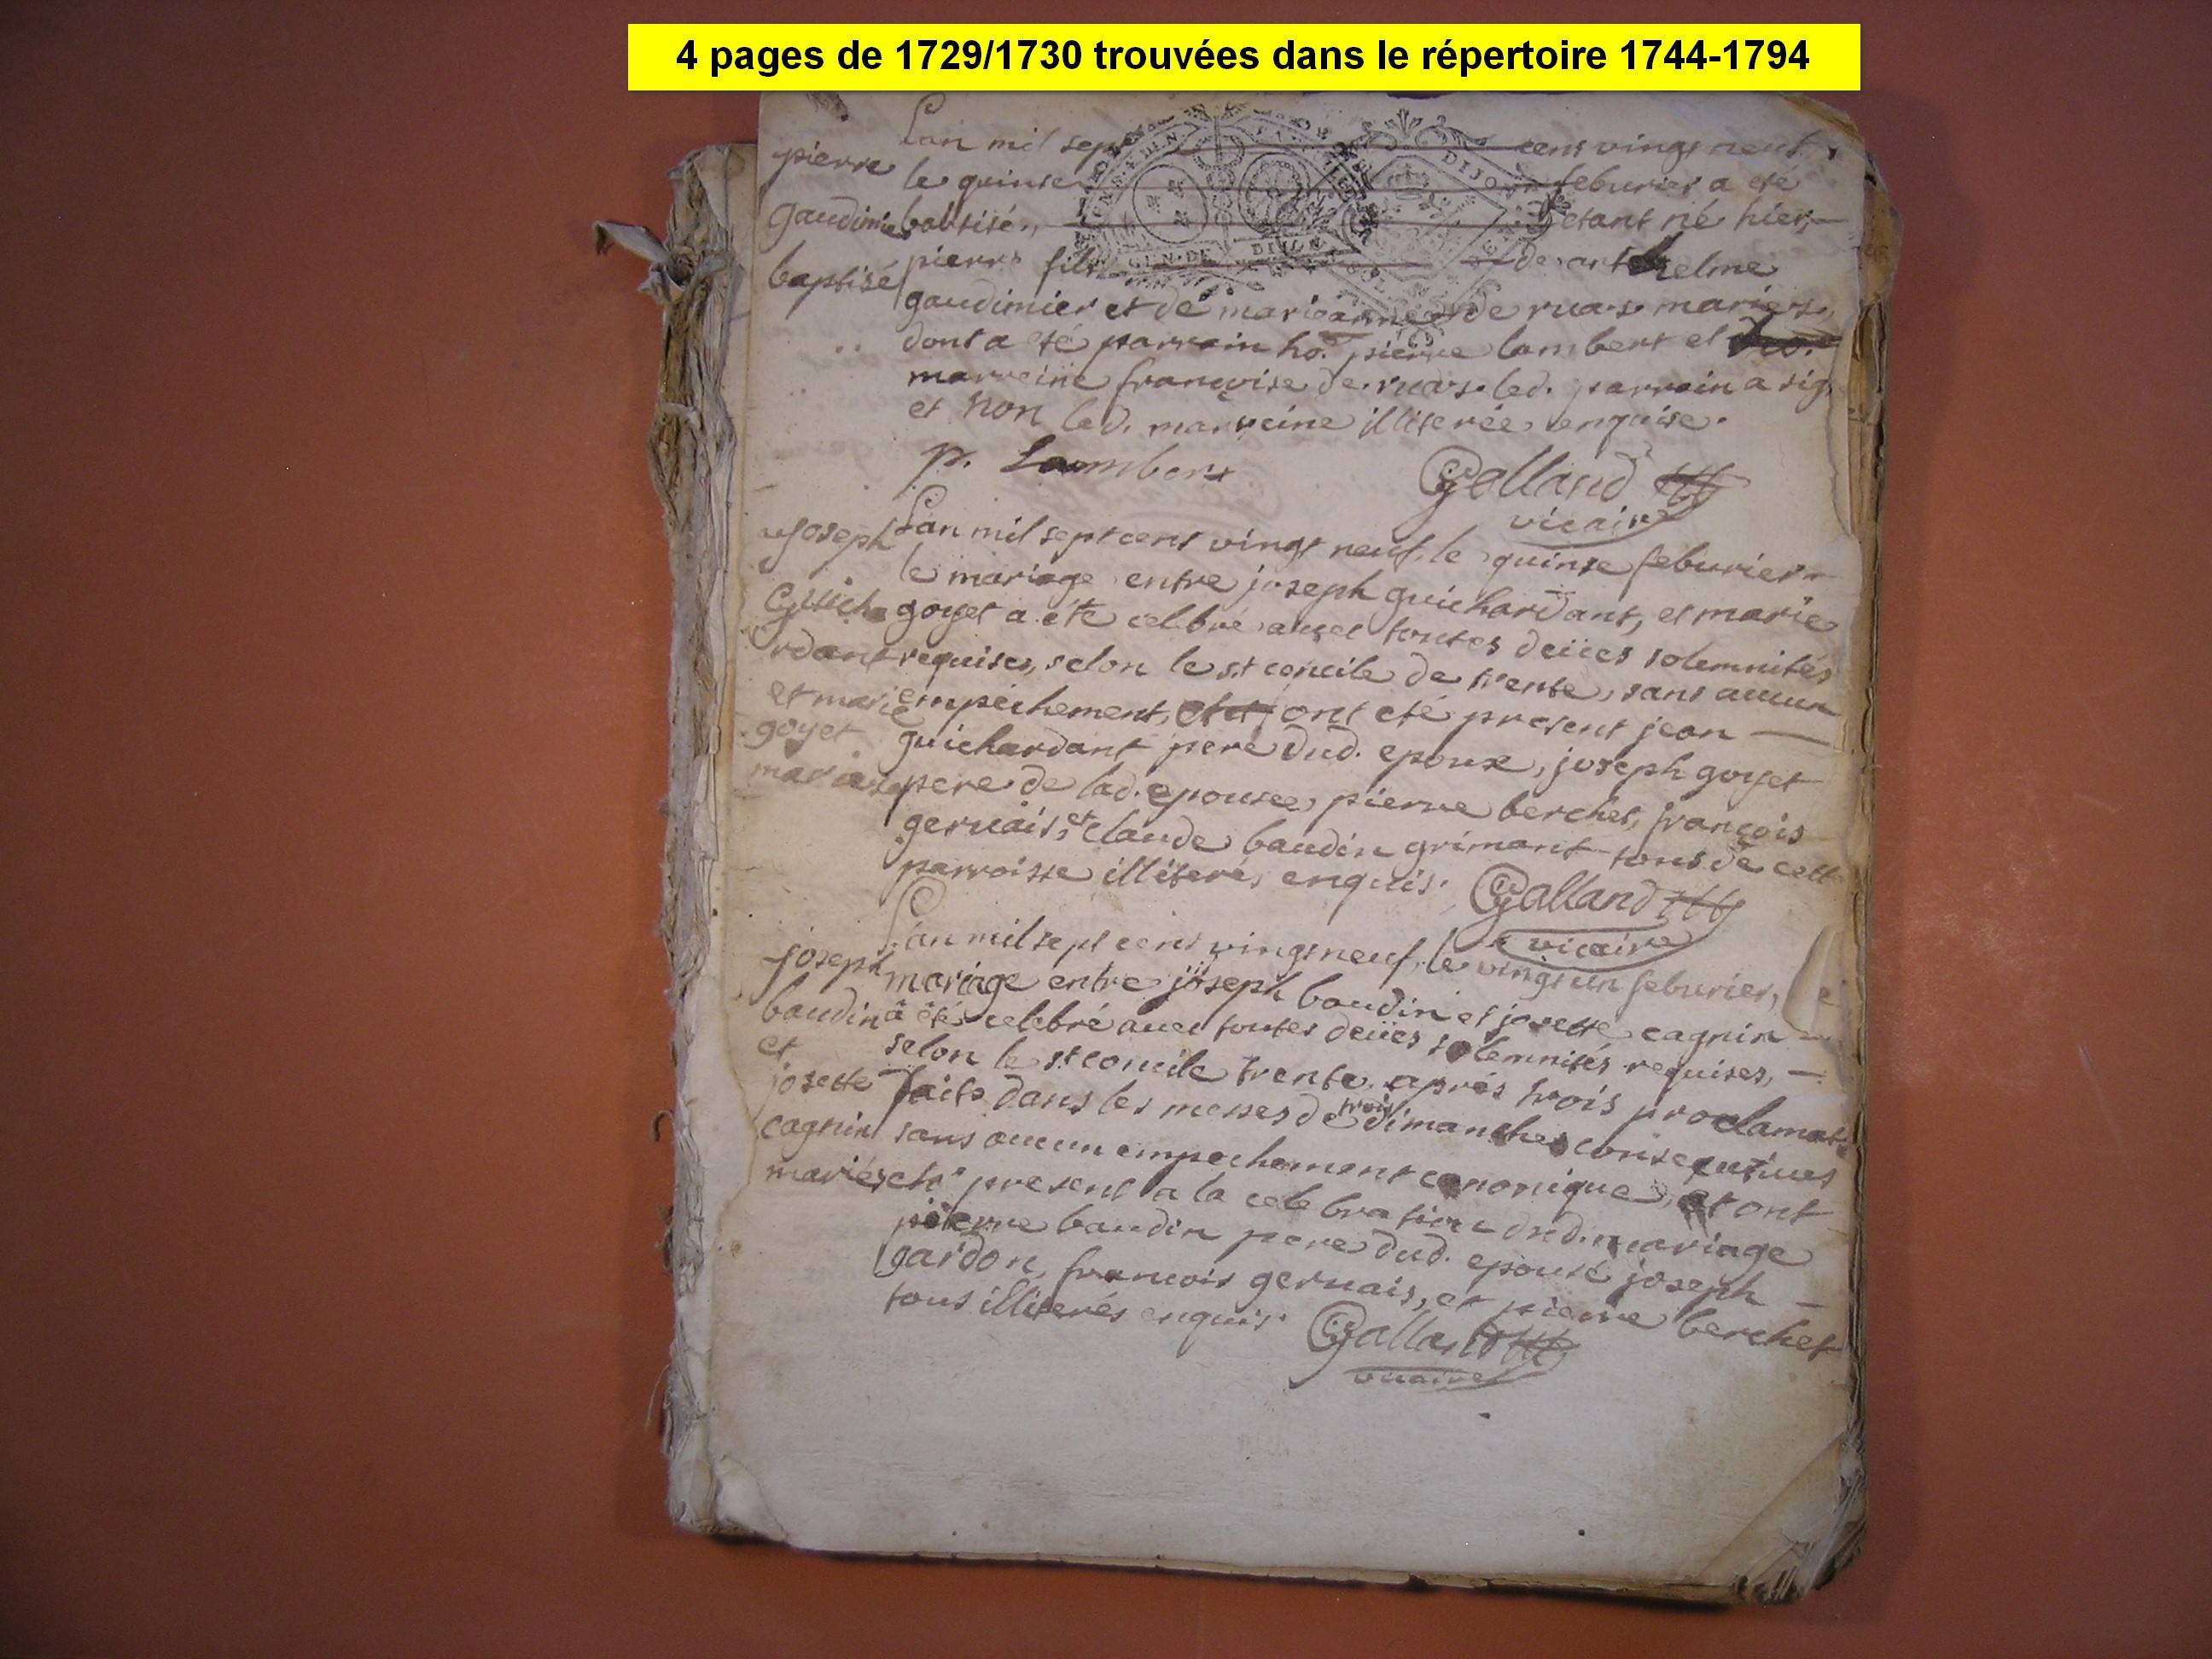 4 pages de 1729/1730 trouvées dans le répertoire 1744-1794
Lan mil sept cens vingt neuf,
le quinse feburier a eté
batisé, etant né hier,
pierre fils de anthelme
gaudimier et de marieanne de ruas mariers,
dont a eté parrain ho. pierre lambert et
marreine francoise de ruas. led. parrain a sig
et non lad. marreine illiterée enquise.
pierre
gaudimier
baptisé
GEN. DE DIJON
DIJON
p. Lambert
Galland
vicaire
Lan mil sept cens vingt neuf, le quinse feburier
le mariage entre joseph guichardant, et marie
goyet a été celbré avec toutes deües solemnités
requises, selon le st concile de trente, sans aucun
empéchement, ont eté present jean
guichardant pere dud. epoux, joseph goyet
pere de lad. epousée, pierre berchet, françois
gervais, et claude baudin grimant tous de cett
parroisse illiterés enquis.
joseph
Guicha
rdant
et marie
goyet
mariez
Galland
vicaire
Lan mil sept cens vingt neuf, le vingt un feburier, le
mariage entre joseph baudin et josette cagnin
a été celebré avec toutes deües solemnités requises,
selon le st concile trente, aprés trois proclamat
faits dans les messes de trois dimanches consequtives
sans aucun empechement canonique, et ont
eté present a la celebration dud. mariage
pierre baudin pere dud. epousé joseph
gardon, francois gervais, et pierre berchet
tous illiterés enquis.
joseph
baudin
et
josette
cagnin
mariés
Galland
vicaire